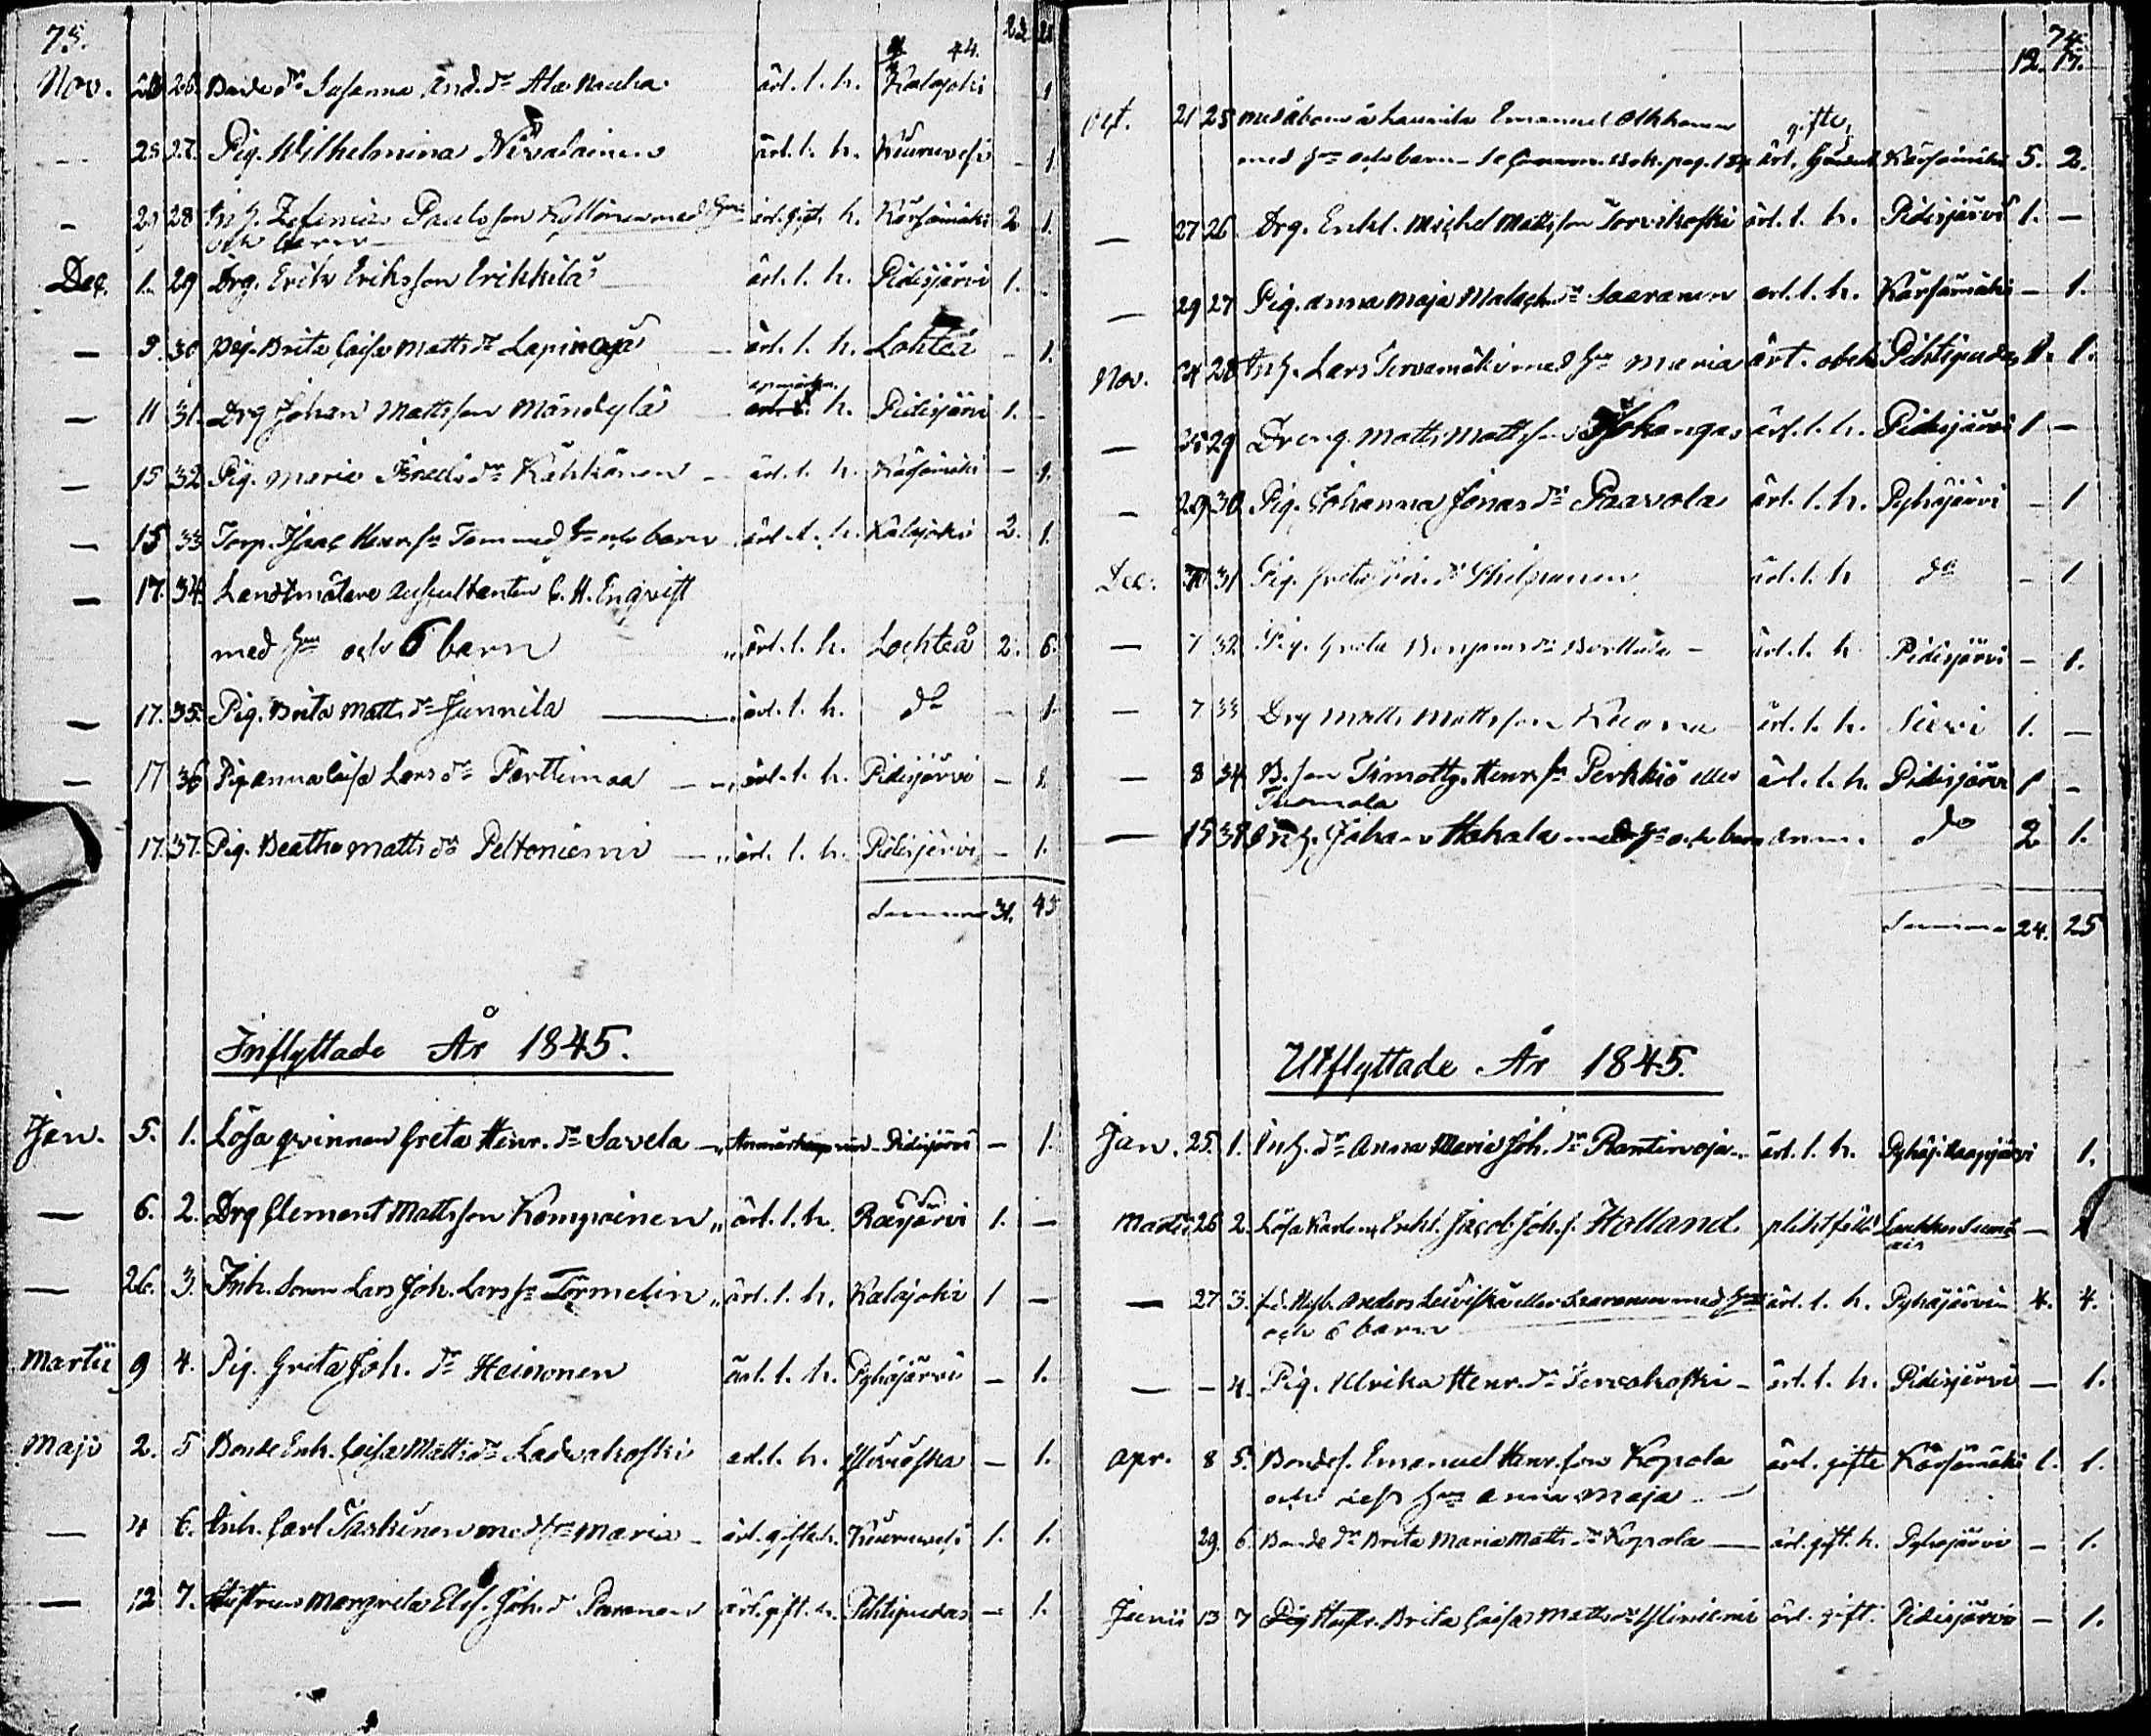 73. 44. 22 28
Nov. 28 26. Bonde dr Susanna And. dr Ala Rauha ärl. l. h. Kalajoki 1
— 28. 27. Pig. Wilhelmina Nivalainen ärl. l. h. Kiuruvesi - 1.
- 29 28 Inh. Zefanias Paulsson Kyllönen med hu ärl. gift. h. Kärsämäki 2 1.
och barn
Dec. 1. 29 Drg. Erik Eriksson Erikkilä ärl. l. h. Pidisjärvi 1. -
— 9. 30 Pig. Brita Caisa Matts dr Lapinoja ärl. l. h. Lohteå - 1.
— 11 31. Drg Johan Mattsson Mändylä h. Pidisjärvi 1. -
— 15 32. Pig. Maria Isracs dr Kähkönen ärl. l. h. Kärsämäki - 1.
— 15 33 Torp. Isaac Henr. sn med hu och barn ärl. l. h. Kalajoki 2. 1.
— 17. 34. Landtmätare Auscultanten C. H. Enqvist
med hu och 6 barn ärl. l. h. Lochteå 2. 6.
— 17. 35. Pig. Brita Matts dr Junnila ärl. l. h. do - 1.
— 17 36 Pig Anna Caisa Lars dr Perttimaa ärl. l. h. Pidisjärvi - 1.
17. 37. Pig. Beatha Matts dr Peltoniemi ärl. l. h. Pidisjärvi - 1.
Summa 31. 45
Inflyttade År 1845.
Jan. 5. 1. Lösa qvinnan Greta Henr. dr Savela Pidisjärvi - 1.
— 6. 2. Drg Clement Mattsson Kamprainen ärl. l. h. Reisjärvi 1. —
— 26. 3. Inh. Sonen Lars Joh. Lars sn Törmelin ärl. l. h. Kalajoki 1 —
Martii 9 4. Pig. Greta Joh. dr Heinonen ärl. l. h. Pyhäjärvi — 1.
Maji 2. 5 Bonde Enk. Caisa Matts dr Ladvakoski ärl. l. h. Ylivieska — 1.
— 4 6. Inh. Carl Taskinen med hu Maria ärl. gifte h. Kiuruvesi 1. 1.
— 12 7. Hustrun Margreta Elis. Joh. dr Paranen ärl. gift. h. Pihtipudas — 1.
74.
12. 17.
Oct. 21 25 Medåboen å Launila Emanuel Olkkonen gifte,
med hu och barn ärl. Kärsämäki 5. 2.
— 27 26 Drg. Enkl. Michel Mattsson Torvikoski ärl. l. h. Pidisjärvi 1. —
— 29 27 Pig. Anna Maja Malach. dr Saaranen ärl. l. h. Kärsämäki — 1.
Nov. 24 28 Inh. Lars Tervamäki med hu Maria ärl. Pihtipudas 1. 1.
— 25 29 Dreng. Matts Mattsson Jokangas ärl. l. h. Pidisjärvi 1 —
— 29 30. Pig. Johanna Jonas dr Paavola ärl. l. h. Pyhäjärvi - 1
Dec. 31 Pig. Greta ärl. l. h do - 1
— 7 32. Pig. Greta Benjams dr ärl. l. h Pidisjärvi - 1.
— 7 33 Drg Matts Mattsson Kuona ärl. l. h. Sievi 1. —
— 8 34 B. son Timoth. Henr. sn Perkkiö eller ärl. l. h. Pidisjärvi 1 -
Tuomala
— 15 Inh. Johan Hakala med hu och barn anm. do 2 1.
Summa 24. 25
Utflyttade År 1845.
Jan. 25. 1. Inh. dr Anna Maria Joh. dr Rantinoja ärl. l. h. 1.
Martii 26 2. Lösa Karlen, Enkl. Jacob Joh. s. Holland —
— 27 3. f.d. Nyb. Anders Leiviskä eller Saaranen med hu ärl. l. h. Pyhäjärvi 4. 4.
och 6 barn
— — 4. Pig. Ulrika Henr. dr Tervakoski ärl. l. h. Pidisjärvi — 1.
Apr. 8 5. Bondes. Emanuel Henr. son Kopola ärl. gifte Kärsämäki 1. 1.
och dess hu Anna Maja
29. 6. Bonde dr Brita Maria Matts dr Kopola ärl. gift. h. Pyhäjärvi - 1.
Junii 13 7 Hustr. Brita Caisa Matts dr Yliniemi ärl. gift. Pidisjärvi — 1.